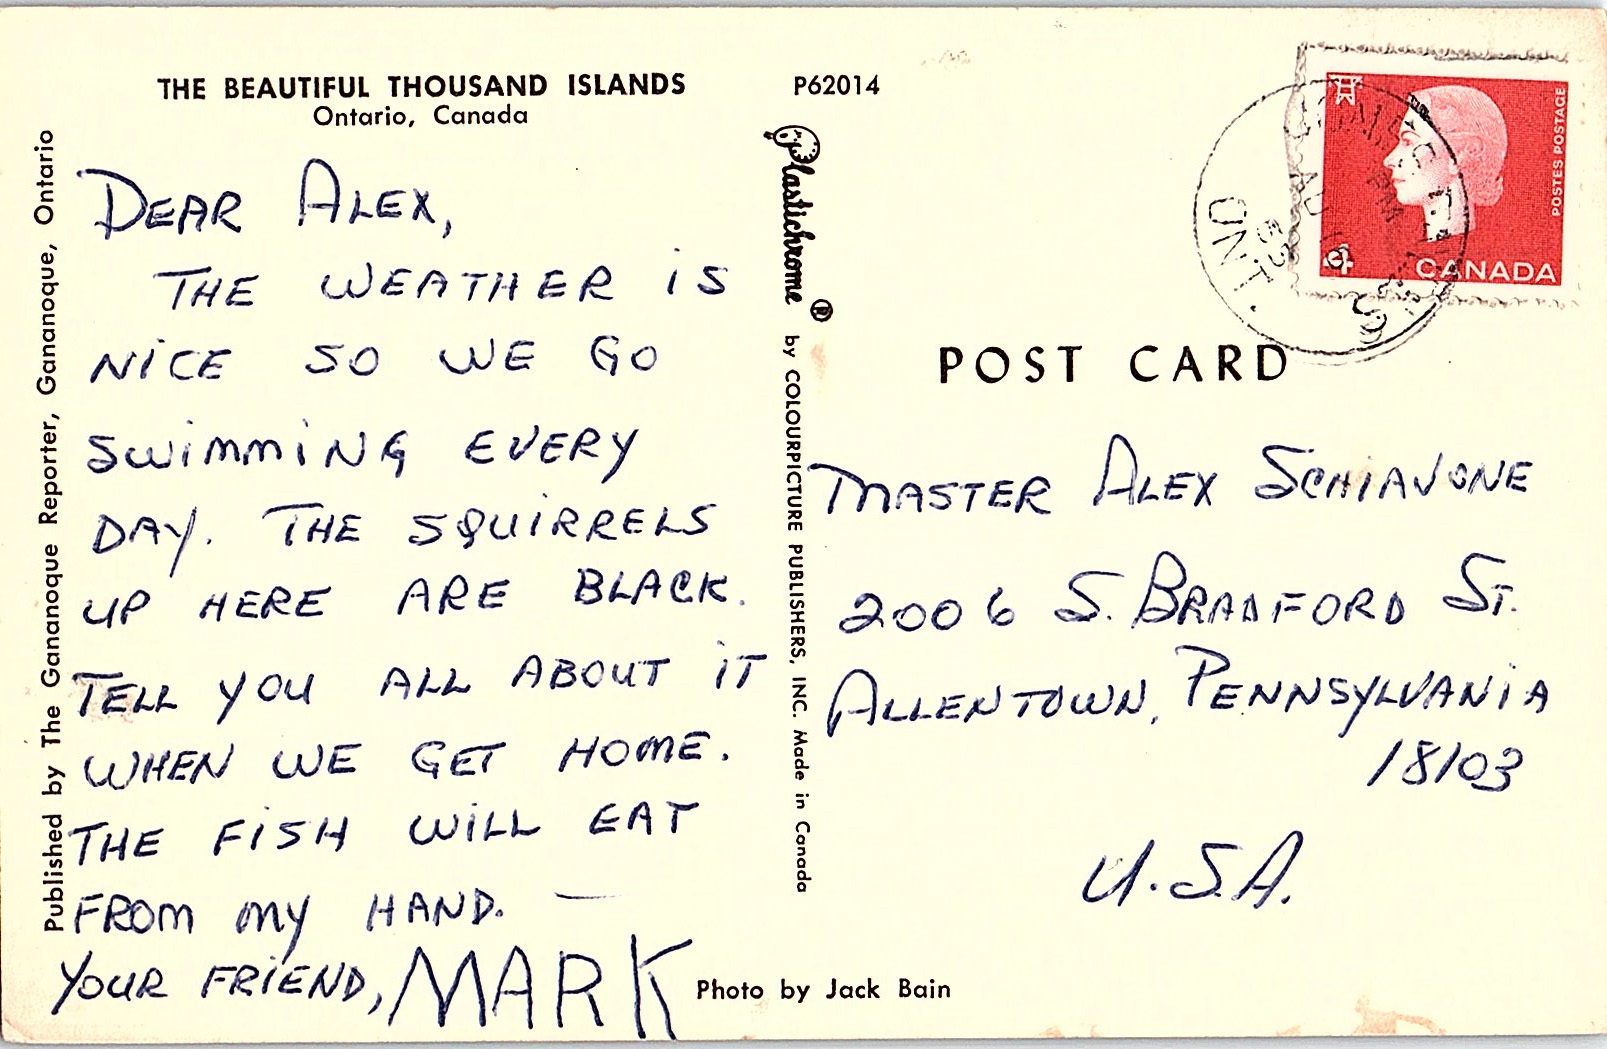 THE BEAUTIFUL THOUSAND ISLANDS
Ontario, Canada
DEAR ALEX,
THE WEATHER IS
NICE SO WE GO
SWIMMING EVERY
DAY. THE SQUIRRELS
UP HERE ARE BLACK.
TELL YOU ALL ABOUT IT
WHEN WE GET HOME.
THE FISH WILL EAT
FROM MY HAND. —
YOUR FRIEND, MARK
Published by The Gananoque Reporter, Gananoque, Ontario
P62014
Plastichrome ® by COLOURPICTURE PUBLISHERS, INC. Made in Canada
POSTES POSTAGE
4
CANADA
PM
AU 16
ONT.
POST CARD
MASTER ALEX SCHIAVONE
2006 S. BRADFORD ST.
ALLENTOWN, PENNSYLVANIA
18103
U.S.A.
Photo by Jack Bain